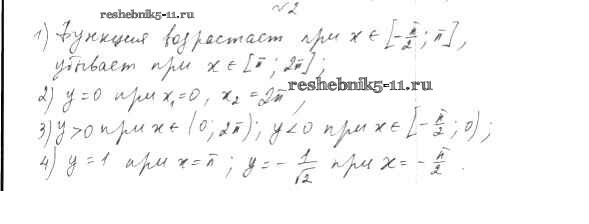 №2
reshebnik5-11.ru
1) Функция возрастает при x ∈ [-π/2; π],
убывает при x ∈ [π; 2π];
reshebnik5-11.ru
2) y=0 при x₁=0, x₂=2π,
3) y>0 при x ∈ (0; 2π); y<0 при x ∈ [-π/2; 0);
4) y=1 при x=π; y=-1/√2 при x=-π/2.